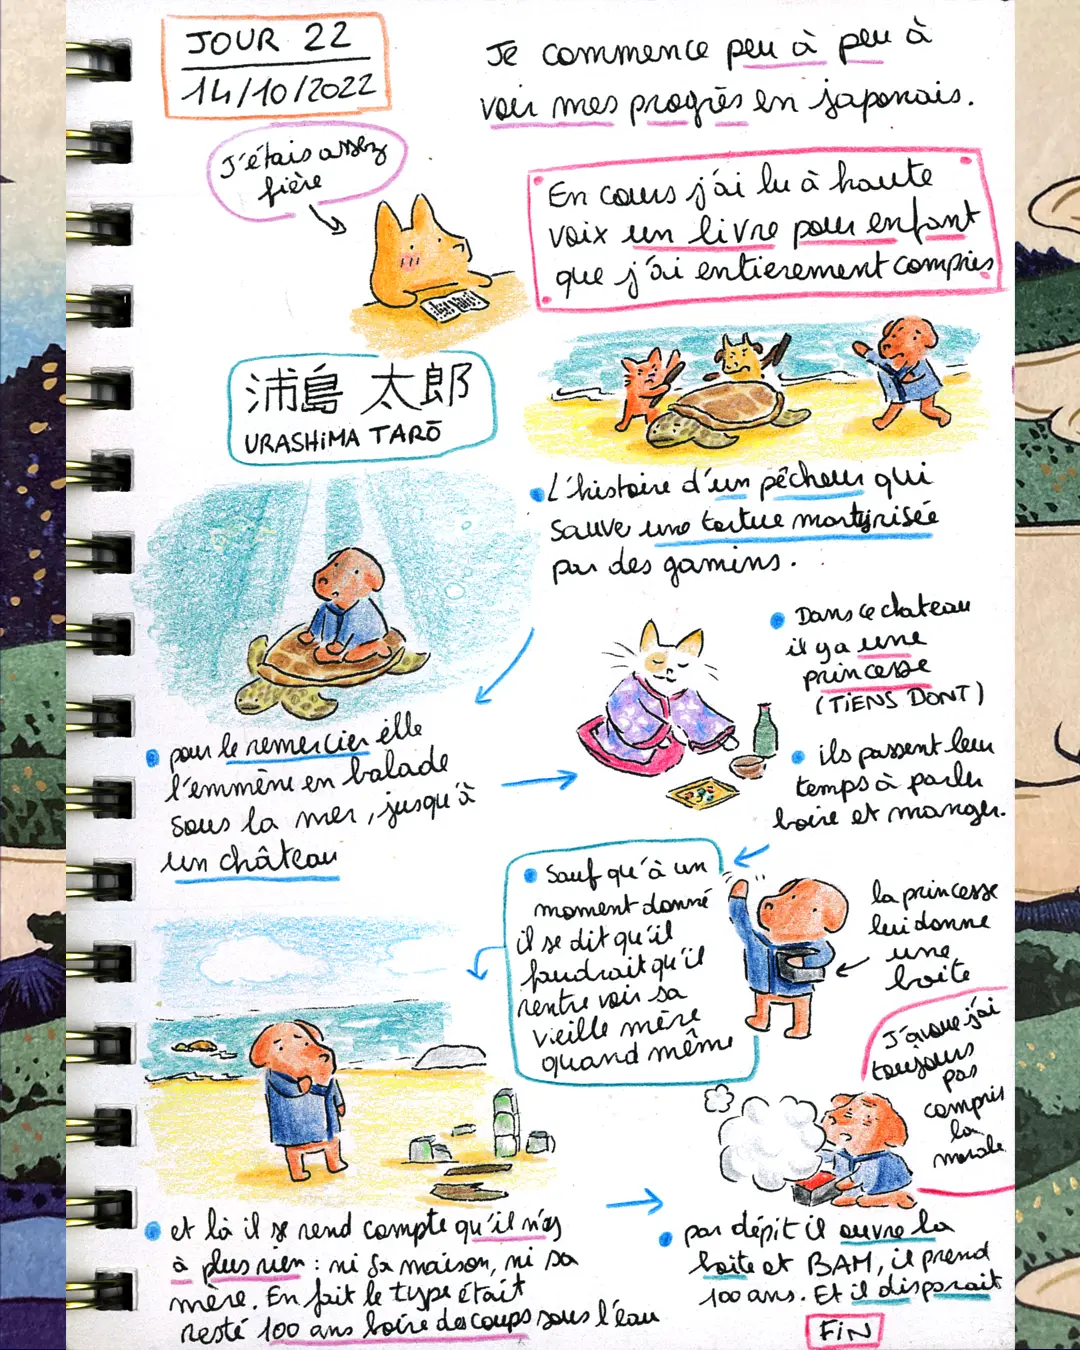 JOUR 22
14/10/2022
Je commence peu à peu à
voir mes progrès en japonais.
J'étais assez
fière
En cours j'ai lu à haute
voix un livre pour enfant
que j'ai entierement compris
浦島 太郎
URASHiMA TARŌ
L'histoire d'un pêcheur qui
sauve une tortue martyrisée
par des gamins.
pour le remercier elle
l'emmène en balade
sous la mer, jusqu'à
un château
Dans ce chateau
il y a une
princesse
(TiENS DONT)
ils passent leur
temps à parler
boire et manger.
Sauf qu'à un
moment donné
il se dit qu'il
faudrait qu'il
rentre voir sa
vieille mère
quand même
la princesse
lui donne
une
boite
et là il se rend compte qu'il n'y
à plus rien : ni sa maison, ni sa
mère. En fait le type était
resté 100 ans boire des coups sous l'eau
J'avoue j'ai
toujours
pas
compris
la
morale
par dépit il ouvre la
boite et BAM, il prend
100 ans. Et il disparait
FiN